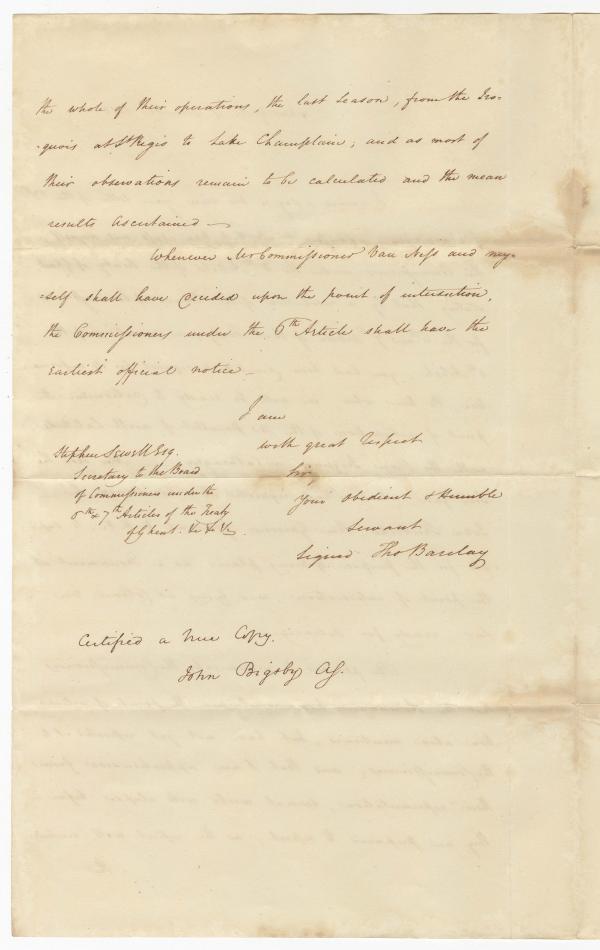 the whole of their operations, the last season, from the Iro-
-quois at St Regis to Lake Champlain; and as most of
their observations remain to be calculated and the mean
results ascertained —
Whenever Mr Commissioner Van Ness and my-
-self shall have decided upon the point of intersection,
the Commissioners under the 6th Article shall have the
earliest official notice —
I am
with great respect
Sir,
Your obedient & Humble
Servant
Signed Tho Barclay
Stephen Sewell Esq.
Secretary to the Board
of Commissioners under the
6th & 7th Articles of the Treaty
of Ghent. &c &c &c
Certified a true Copy.
John Bigsby